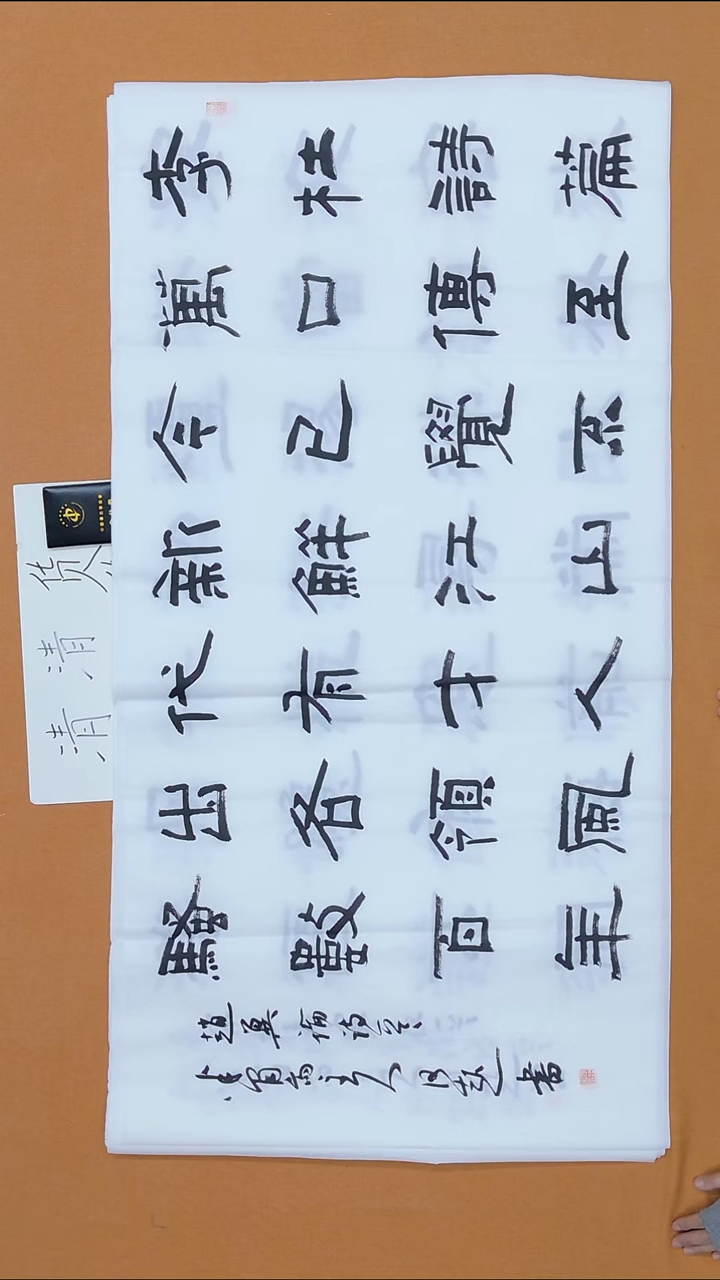 李杜詩篇
萬口傳至
今已覺不
新鮮江山
代有才人
出各領風
騷數百年
趙翼論詩
書
清清货